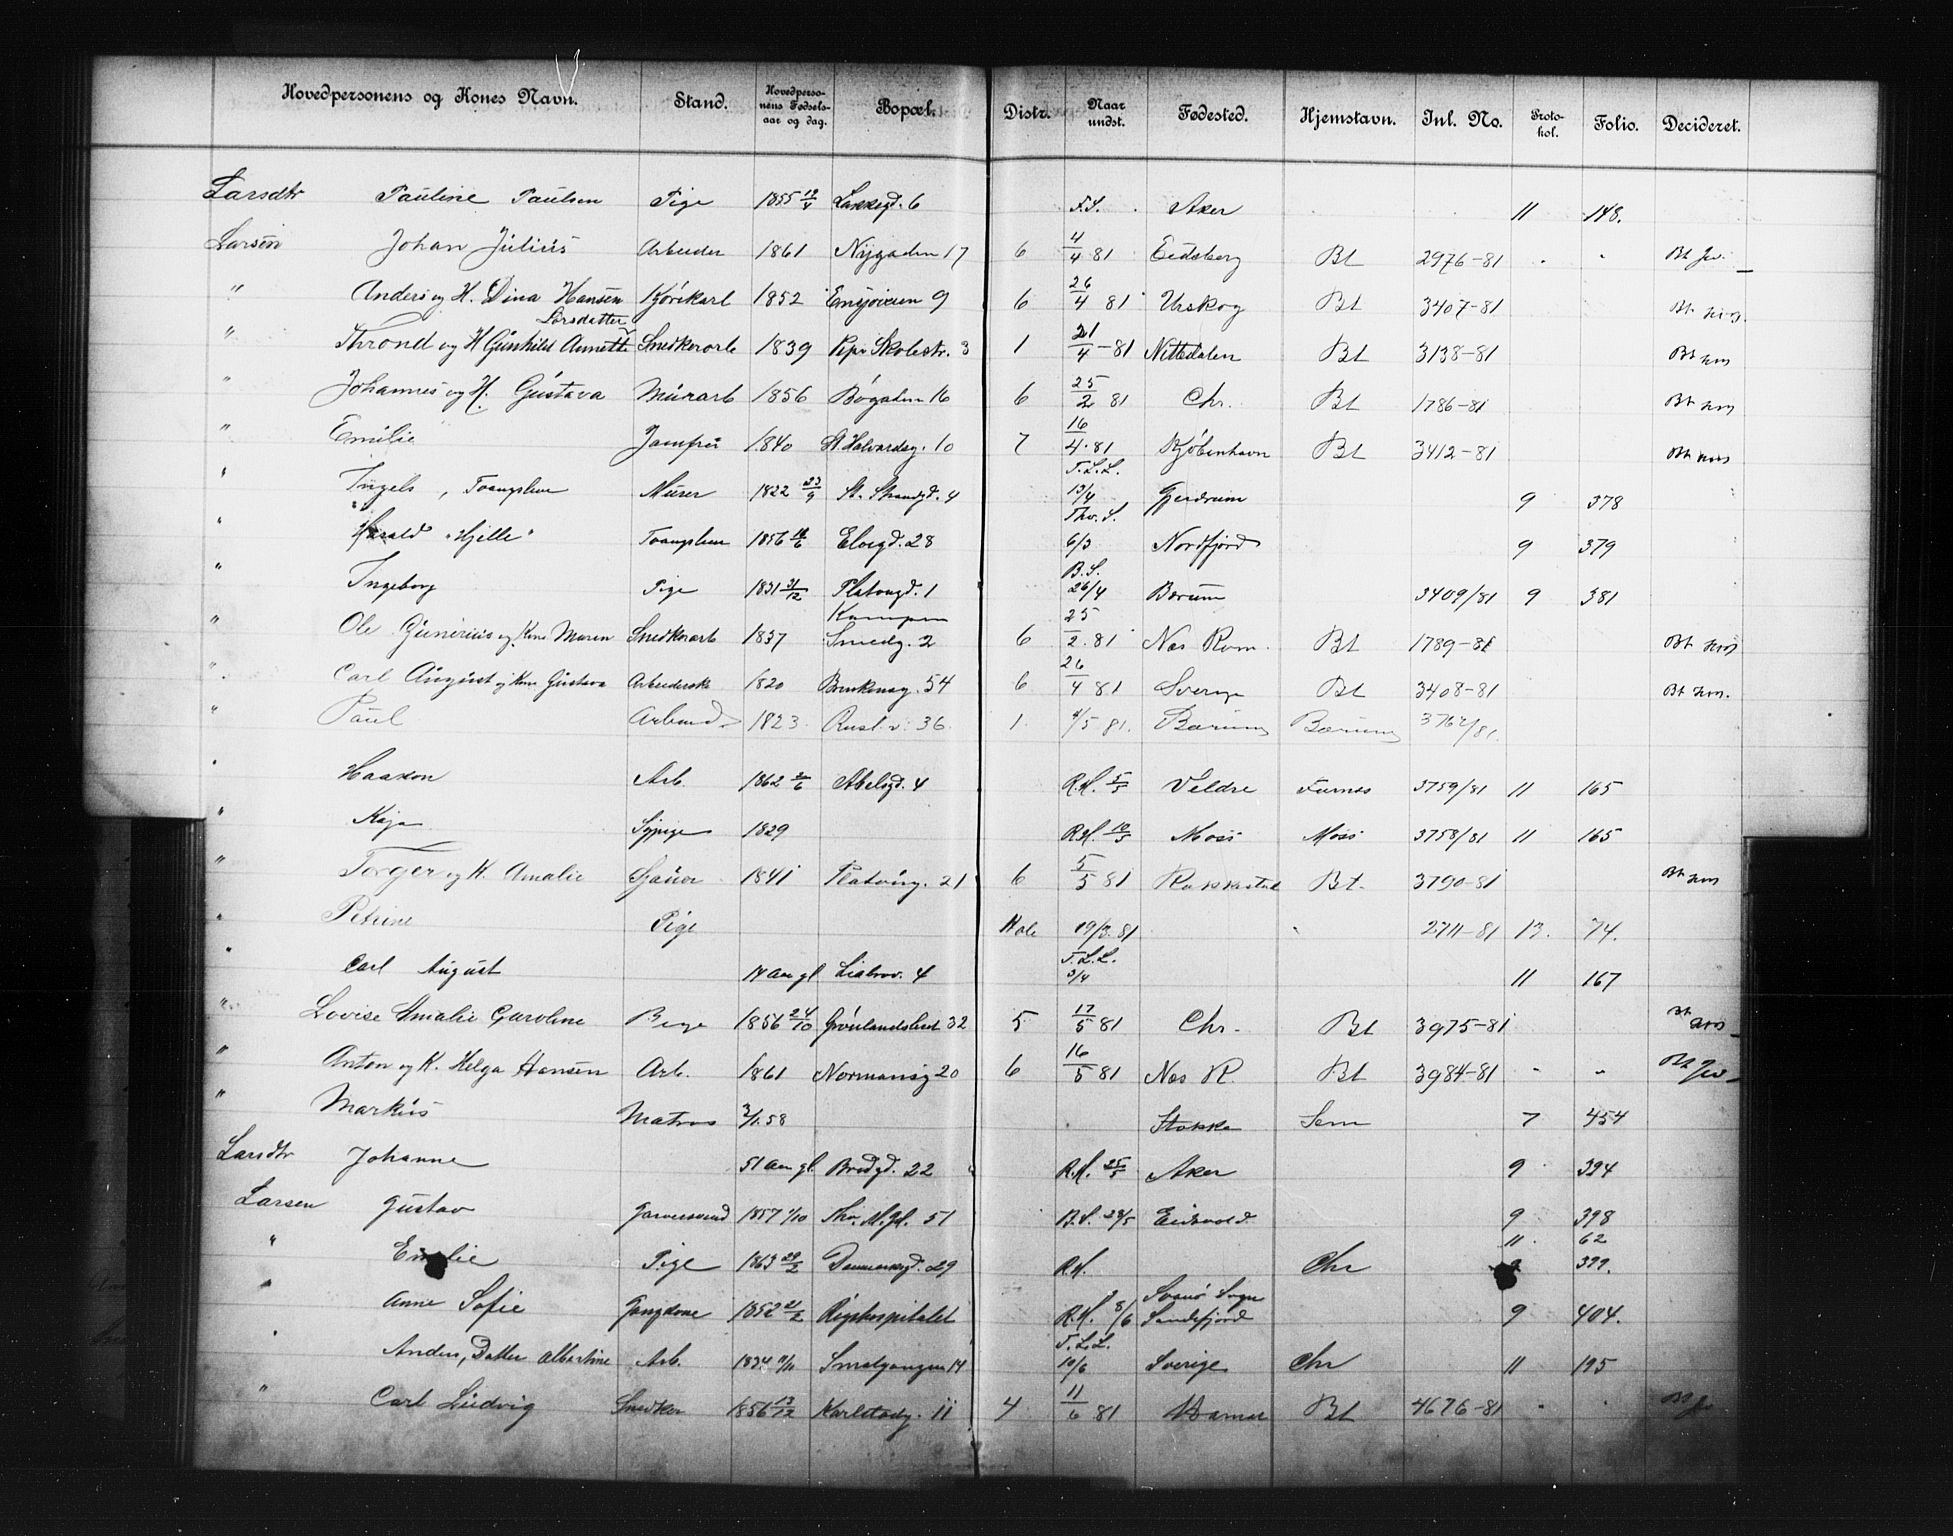 Hovedpersonens og Kones Navn. Stand. Hovedpersonens Fødselsaar og dag. Bopæl. Distr. Naar undst. Fødested. Hjemstavn. Inl. No. Protokol. Folio. Decideret.
Larsdtr Pauline Paulsen Pige 1855 19/4 Lakkegd. 6 F.S. Aker 11 148.
Larsen Johan Julius Arbeider 1861 Nygaden 17 6 4/4 81 Eidsberg Bt 2976-81 Bt
" Anders og H. Dina Hansen Kjørekarl 1852 Ensjøveien 9 6 26/4 81 Urskog Bt 3407-81 Bt
Larsdatter
" Thrond og H Gunhild Annette Snedkerarb 1839 Pipv Skolestr. 3 1 21/4-81 Nittedalen Bt 3138-81 Bt
" Johannes og H. Gustava Murarb 1856 Bøgaden 16 6 25/2 81 Chr. Bt 1786-81 Bt
" Emilie Jomfru 1840 St. Halvardsg. 10 7 16/4.81 Kjøbenhavn Bt 3412-81 Bt
" Ingels, Tvangslem Murer 1822 23/9 St. Strandgd. 4 F.L.L. 13/4 Gjerdrum 9 378
" Harald "Hjelle" Tvangslem 1856 Elvegd. 28 Thv. S. 6/3 Nordfjord 9 379
" Ingeborg Pige 1831 31/12 Platougd. 1 B.S. 26/4 Bærum 3409/81 9 381
" Ole Gunerius og Kone Maren Snedkerarb 1837 Kampen Smedg. 2 6 25/2.81 Nes Rom. Bt 1789-81 Bt
" Carl August og Kone Gustava Arbeiderske 1820 Brinkensg. 54 6 26/4 81 Sverige Bt 3408-81 Bt
" Paul Arbeid. 1823 Rusl.v. 36. 1. 4/5 81. Bærum Bærum 3762/81.
" Haakon Arb. 1862 Abelsgd. 4 R.H. 5/5 Veldre Furnes 3759/81 11 165
" Kaja Sypige 1829 R.H. 10/5 Moss Moss 3758/81 11 165
" Torger og K. Amalie Sjauer 1841 Platoug. 21 6 5/5 81 Rakkestad Bt. 3790-81 Bt
" Petrine Pige Hole 19/3.81 2711-81 13. 74.
" Carl August 14 Aar gl. Liabrov. 4 F.L.L. 3/4 11 167
" Lovise Amalie Caroline Pige 1856 24/10 Grønlandsleret 32 5 17/5 81 Chr. Bt 3975-81 Bt
" Anton og K. Helga Hansen Arb. 1861 Normansg 20 6 16/5 81 Nes R. Bt 3984-81 Bt
" Markus Matros 3/1.58 Stokke Sem 7 454
Larsdtr Johanne 51 Aar gl. Bredgd. 22 R.H. 25/5 Aker 9 394
Larsen Gustav Garversvend 1857 1/10 Thv. M. gd. 51 B.S. 28/5 Eidsvold 9 398
" Emilie Pige 1863 29/2 Danmarksgd. 29 R.H. Chr 11 62 9 399.
" Anne Sofie Gangkone 1852 21/2 Rigshospitalet R.H. 8/6 Sogn Sandefjord 9 404.
" Anders, Datter Albertine Arb. 1834 9/11 Smalgangen 14 F.L.L. 10/6 Sverige Chr 11 195
" Carl Ludvig Snedker 1856 13/12 Karlstadg. 11 4 11/6 81 Hamar Bt 4676-81 Bt